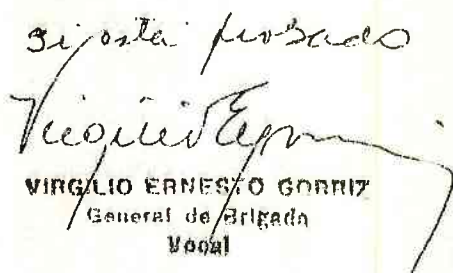 Si está probado
VIRGILIO ERNESTO GORRIZ
General de Brigada
Vocal